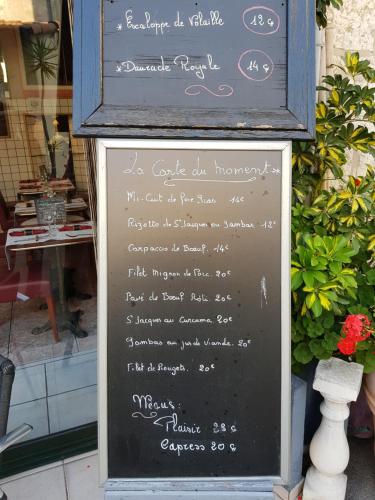 * Escaloppe de Volaille 12€
* Daurade Royale 14€
La Carte du moment *
Mi-Cuit de foie Gras 14€
Rizotto de St Jacques ou Jambas 12€
Carpaccio de Boeuf. 14€
Filet Mignon de Porc. 20€
Pavé de Boeuf Rôti 20€
St Jacques au Curcuma 20€
Gambas au jus de Viande. 20€
Filet de Rougets. 20€
Menus:
Plaisir 28€
Express 20€